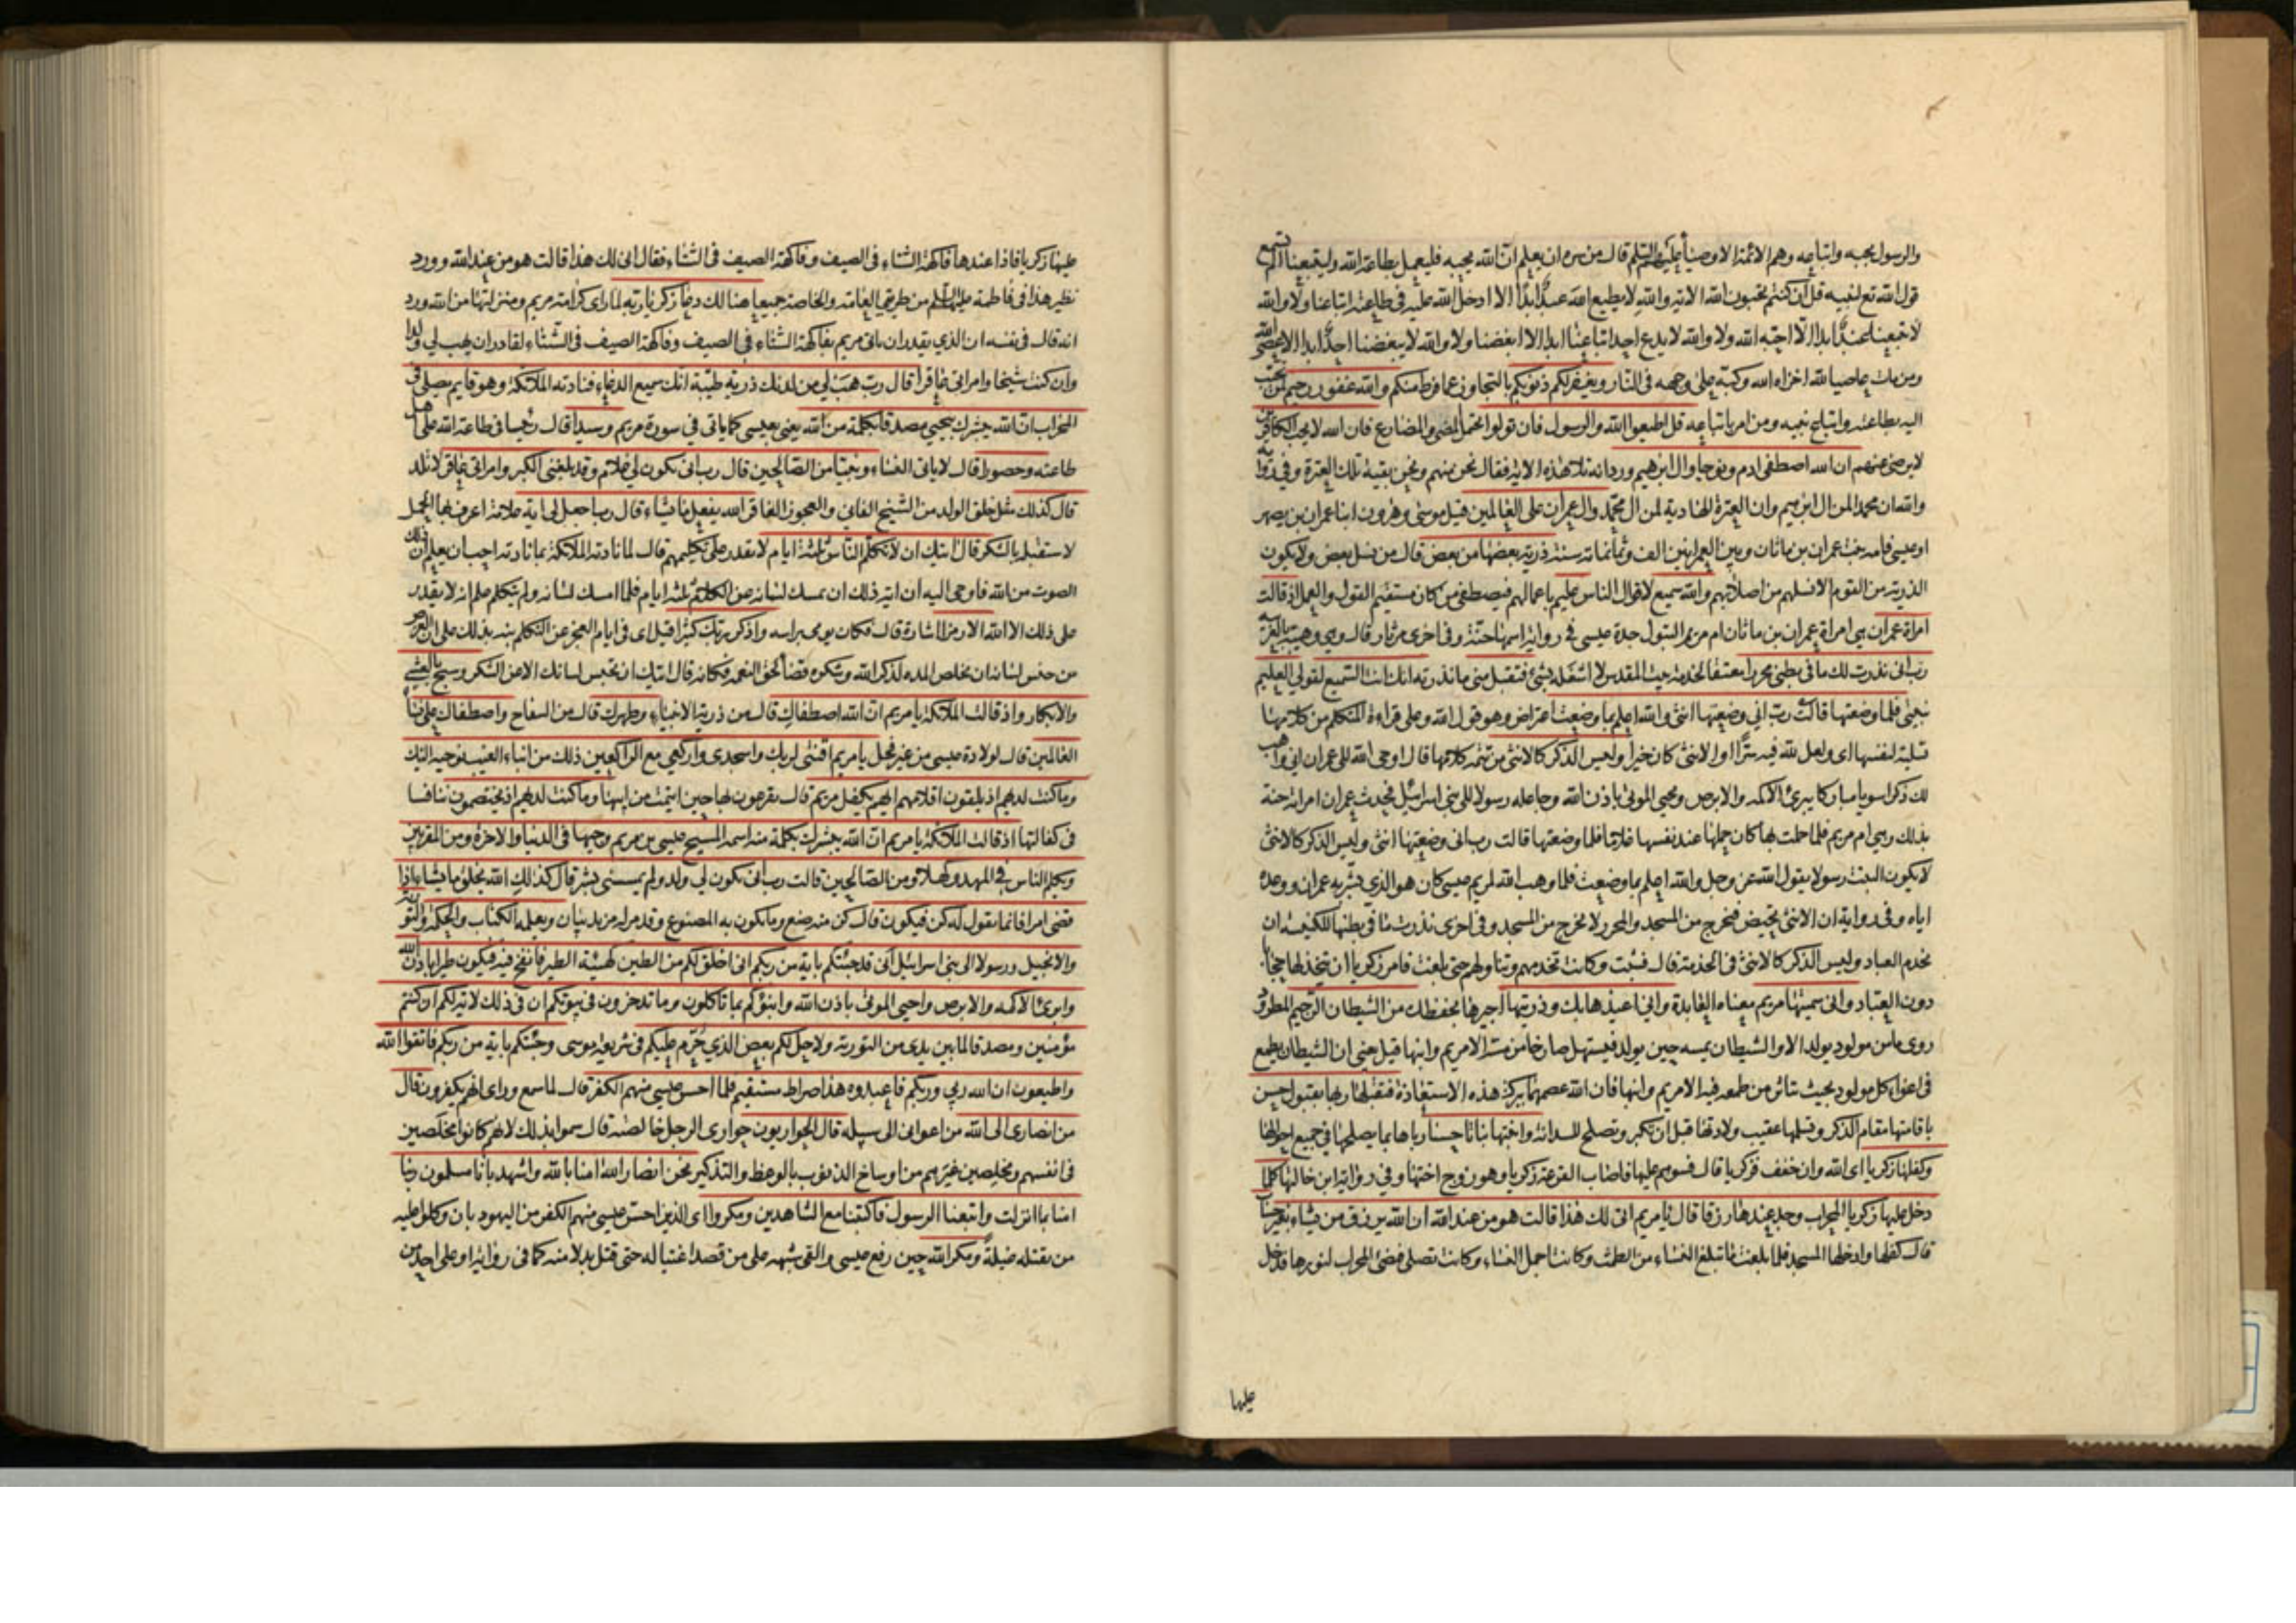 والرسول يحبه واتباعه وهم الائمة الاوصياء عليهم السلم قال من سره ان يعلم ان الله يحبه فليعمل بطاعة الله وليتبعنا الم تسمع
قول الله تع لنبيه قل ان كنتم تحبون الله الاية والله لا يطيع الله عبد ابدا الا ادخل الله عليه في طاعته اتباعنا ولا والله
لا يتبعنا عبد ابدا الا احبه الله ولا والله لا يدع احد اتباعنا ابدا الا ابغضنا ولا والله لا يبغضنا احد ابدا الا عصى الله
ومن مات عاصيا لله اخزاه الله وكبه على وجهه في النار ويغفر لكم ذنوبكم بالتجاوز عما فرط منكم والله غفور رحيم لمن تحبب
اليه بطاعته واتباع نبيه ومن امر باتباعه قل اطيعوا الله والرسول فان تولوا يحتمل المضي والمضارع فان الله لا يحب الكافرين
لا يرضى عنهم ان الله اصطفى ادم ونوحا وال ابرهيم ورد انه تلا هذه الاية فقال نحن منهم ونحن بقية تلك العترة وفي رواية
والله ان محمدا لمن ال ابرهيم وان العترة الهادية لمن ال محمد وال عمران على العالمين قيل موسى وهرون ابنا عمران بن يصهر
او عيسى وامه بنت عمران بن ماثان وبين العمرانين الف وثمانمائة سنة ذرية بعضها من بعض قال من نسل بعض ولا يكون
الذرية من القوم الا نسلهم من اصلابهم والله سميع لاقوال الناس عليم باعمالهم فيصطفي من كان مستقيم القول والعمل اذ قالت
امراة عمران هي امراة عمران بن ماثان ام مريم البتول جدة عيسى في رواية اسمها حنة وفي اخرى مرثار قال وهي وهيبة بالعربية
رب اني نذرت لك ما في بطني محررا معتقا لخدمة بيت المقدس لا اشغله بشئ فتقبل مني ما نذرته انك انت السميع لقولي العليم
بنيتي فلما وضعتها قالت رب اني وضعتها انثى والله اعلم بما وضعت اعتراض وهو قول الله وعلى قراءة المتكلم من كلامها
تسلية لنفسها اى ولعل لله فيه سرا او الانثى كان خيرا وليس الذكر كالانثى من تتمة كلامها قال اوحى الله الى عمران اني واهب
لك ذكرا سويا مباركا يبرئ الاكمه والابرص ويحيي الموتى باذن الله وجاعله رسولا الى بني اسرائيل فحدث عمران امراته حنة
بذلك وهي ام مريم فلما حملت بها كان حملها عند نفسها غلاما فلما وضعتها قالت رب اني وضعتها انثى وليس الذكر كالانثى
لا يكون البنت رسولا يقول الله عز وجل والله اعلم بما وضعت فلما وهب الله لمريم عيسى كان هو الذي بشر به عمران ووعده
اياه وفي رواية ان الانثى تحيض فتخرج من المسجد والمحرر لا يخرج من المسجد وفي اخرى نذرت ما في بطنها للكنيسة ان
تخدم العباد وليس الذكر كالانثى في الخدمة قال فشبت وكانت تخدمهم وتناولهم حتى بلغت فامر زكريا ان تتخذ لها حجابا
دون العباد واني سميتها مريم معناه العابدة واني اعيذها بك وذريتها اجيرها بحفظك من الشيطان الرجيم المطرود
روى ما من مولود يولد الا والشيطان يمسه حين يولد فيستهل صارخا من مسه الا مريم وابنها قيل يعني ان الشيطان يطمع
في اغواء كل مولود بحيث يتاثر من طمعه فيه الا مريم وابنها فان الله عصمهما ببركة هذه الاستعاذة فتقبلها ربها بقبول حسن
باقامتها مقام الذكر وتسلمها عقيب ولادتها قبل ان تكبر وتصلح للسدانة وانبتها نباتا حسنا رباها بما يصلحها في جميع احوالها
وكفلها زكريا اى الله وان خفف فزكريا قال فسوهم عليها فاصاب القرعة زكريا وهو زوج اختها وفي رواية ابن خالتها كلما
دخل عليها زكريا المحراب وجد عندها رزقا قال يا مريم انى لك هذا قالت هو من عند الله ان الله يرزق من يشاء بغير حساب
قال كفلها وادخلها المسجد فلما بلغت ما تبلغ النساء من الطمث وكانت اجمل النساء وكانت تصلي فيضئ المحراب لنورها فدخل
عليها
عليها زكريا فاذا عندها فاكهة الشتاء في الصيف وفاكهة الصيف في الشتاء فقال انى لك هذا قالت هو من عند الله وورد
نظير هذا في فاطمة عليها السلم من طريقي العامة والخاصة جميعا هنالك دعا زكريا ربه لما راى كرامة مريم ومنزلتها من الله ورد
انه قال في نفسه ان الذي يقدر ان ياتي مريم بفاكهة الشتاء في الصيف وفاكهة الصيف في الشتاء لقادر ان يهب لي ولدا
وان كنت شيخا وامراتي عاقرا قال رب هب لي من لدنك ذرية طيبة انك سميع الدعاء فنادته الملائكة وهو قايم يصلي في
المحراب ان الله يبشرك بيحيي مصدقا بكلمة من الله يعني بعيسى كما ياتي في سورة مريم وسيدا قال رئيسا في طاعة الله على اهل
طاعته وحصورا قال لا ياتي النساء ونبيا من الصالحين قال رب انى يكون لي غلام وقد بلغني الكبر وامراتي عاقر لا تلد
قال كذلك مثل خلق الولد من الشيخ الفاني والعجوز العاقر الله يفعل ما يشاء قال رب اجعل لي اية علامة اعرف بها الحمل
لاستقبله بالشكر قال ايتك ان لا تكلم الناس ثلثة ايام لا تقدر على تكليمهم قال لما نادته الملائكة بما نادته احب ان يعلم ان ذلك
الصوت من الله فاوحى اليه ان اية ذلك ان يمسك لسانه عن الكلام ثلثة ايام فلما امسك لسانه ولم يتكلم علم انه لا يقدر
على ذلك الا الله الا رمزا اشارة قال فكان يومي براسه واذكر ربك كثيرا قيل اى في ايام العجز عن التكلم نبه بذلك على ان الغرض
من حبس لسانه ان يخلص المدة لذكر الله وشكره قضاء لحق النعمة فكانه قال ايتك ان تحبس لسانك الا عن الشكر وسبح بالعشي
والابكار واذ قالت الملائكة يا مريم ان الله اصطفاك قال من ذرية الانبياء وطهرك قال من السفاح واصطفاك على نساء
العالمين قال لولادة عيسى من غير فحل يا مريم اقنتي لربك واسجدي واركعي مع الراكعين ذلك من انباء الغيب نوحيه اليك
وما كنت لديهم اذ يلقون اقلامهم ايهم يكفل مريم قال يقرعون بها حين ايتمت من ابيها وما كنت لديهم اذ يختصمون تنافسا
في كفالتها اذ قالت الملائكة يا مريم ان الله يبشرك بكلمة منه اسمه المسيح عيسى بن مريم وجيها في الدنيا والاخرة ومن المقربين
ويكلم الناس في المهد وكهلا ومن الصالحين قالت رب انى يكون لي ولد ولم يمسسني بشر قال كذلك الله يخلق ما يشاء اذا
قضى امرا فانما يقول له كن فيكون قال كن منه صنع وما يكون به المصنوع وقد مر له مزيد بيان ويعلمه الكتاب والحكمة والتورية
والانجيل ورسولا الى بني اسرائيل اني قد جئتكم باية من ربكم اني اخلق لكم من الطين كهيئة الطير فانفخ فيه فيكون طيرا باذن الله
وابرئ الاكمه والابرص واحيي الموتى باذن الله وانبؤكم بما تاكلون وما تدخرون في بيوتكم ان في ذلك لاية لكم ان كنتم
مؤمنين ومصدقا لما بين يدى من التورية ولاحل لكم بعض الذي حرم عليكم في شريعة موسى وجئتكم باية من ربكم فاتقوا الله
واطيعون ان الله ربي وربكم فاعبدوه هذا صراط مستقيم فلما احس عيسى منهم الكفر قال لما سمع وراى انهم يكفرون قال
من انصاري الى الله من اعواني الى سبيله قال الحواريون حواري الرجل خالصته قال سموا بذلك لانهم كانوا مخلصين
في انفسهم ومخلصين غيرهم من اوساخ الذنوب بالوعظ والتذكير نحن انصار الله امنا بالله واشهد بانا مسلمون ربنا
امنا بما انزلت واتبعنا الرسول فاكتبنا مع الشاهدين ومكروا اى الذين احس عيسى منهم الكفر من اليهود بان وكلوا عليه
من يقتله غيلة ومكر الله حين رفع عيسى والقى شبهه على من قصد اغتياله حتى قتل بدلا منه كما في رواية او على احد من